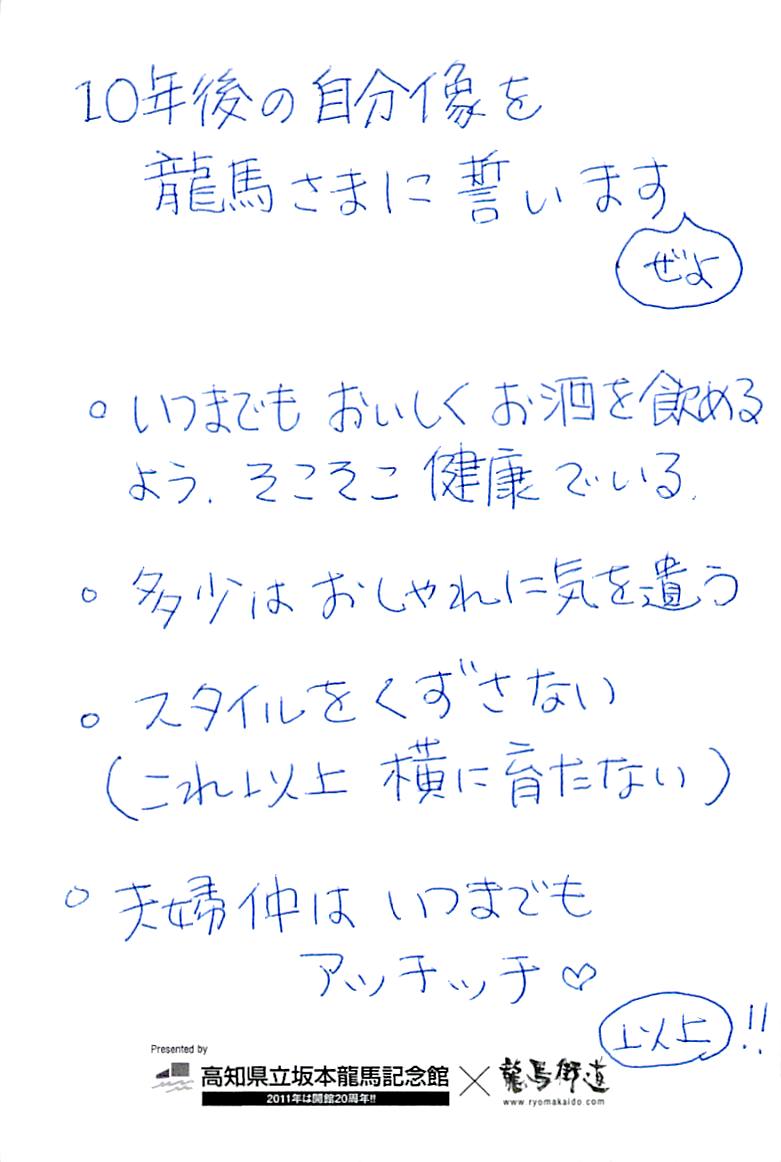 10年後の自分像を
龍馬さまに誓います
ぜよ
○ いつまでもおいしくお酒を飲める
よう、そこそこ健康でいる。
○ 多少はおしゃれに気を遣う
○ スタイルをくずさない
(これ以上 横に育たない)
○ 夫婦仲は いつまでも
アッチッチ♡
以上!!
Presented by
高知県立坂本龍馬記念館 × 龍馬街道
2011年は開館20周年!!
www.ryomakaido.com